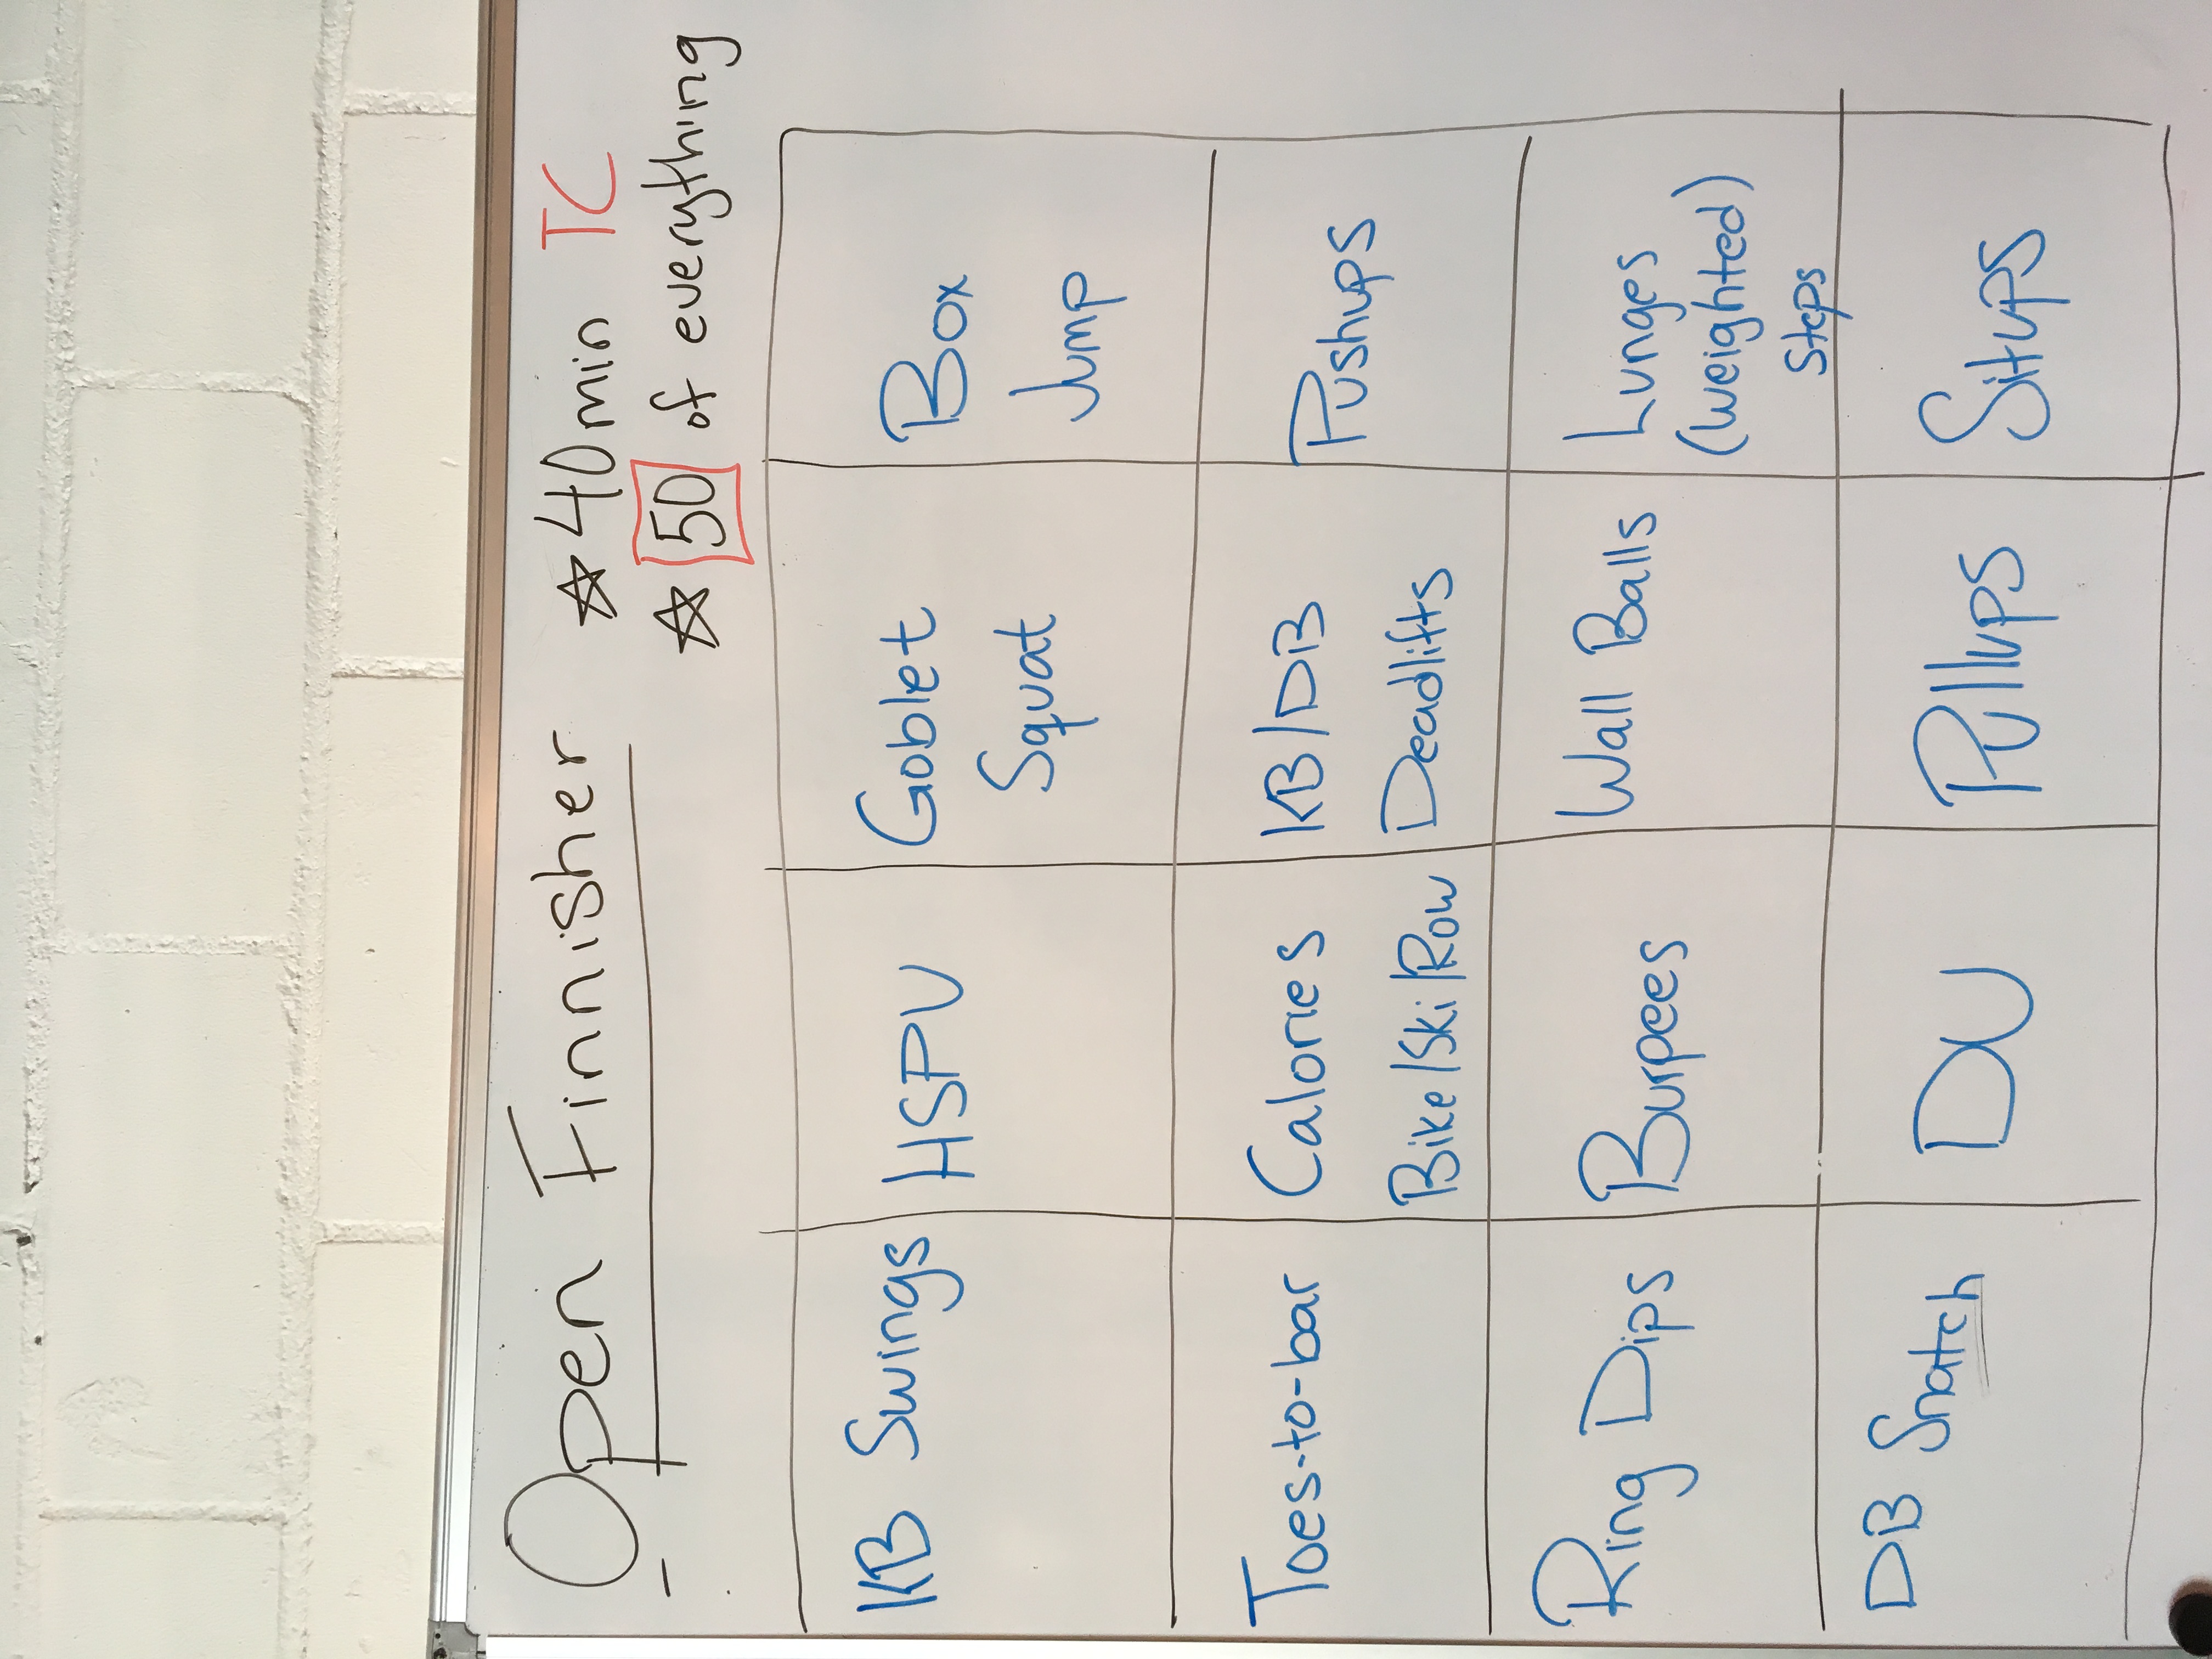 Open Finnisher ☆ 40min TC
☆ 50 of everything
KB Swings
HSPU
Goblet
Squat
Box
Jump
Toes-to-bar
Calories
Bike/Ski/Row
KB/DB
Deadlifts
Pushups
Ring Dips
Burpees
Wall Balls
Lunges
(weighted)
Steps
DB Snatch
DU
Pullups
Situps